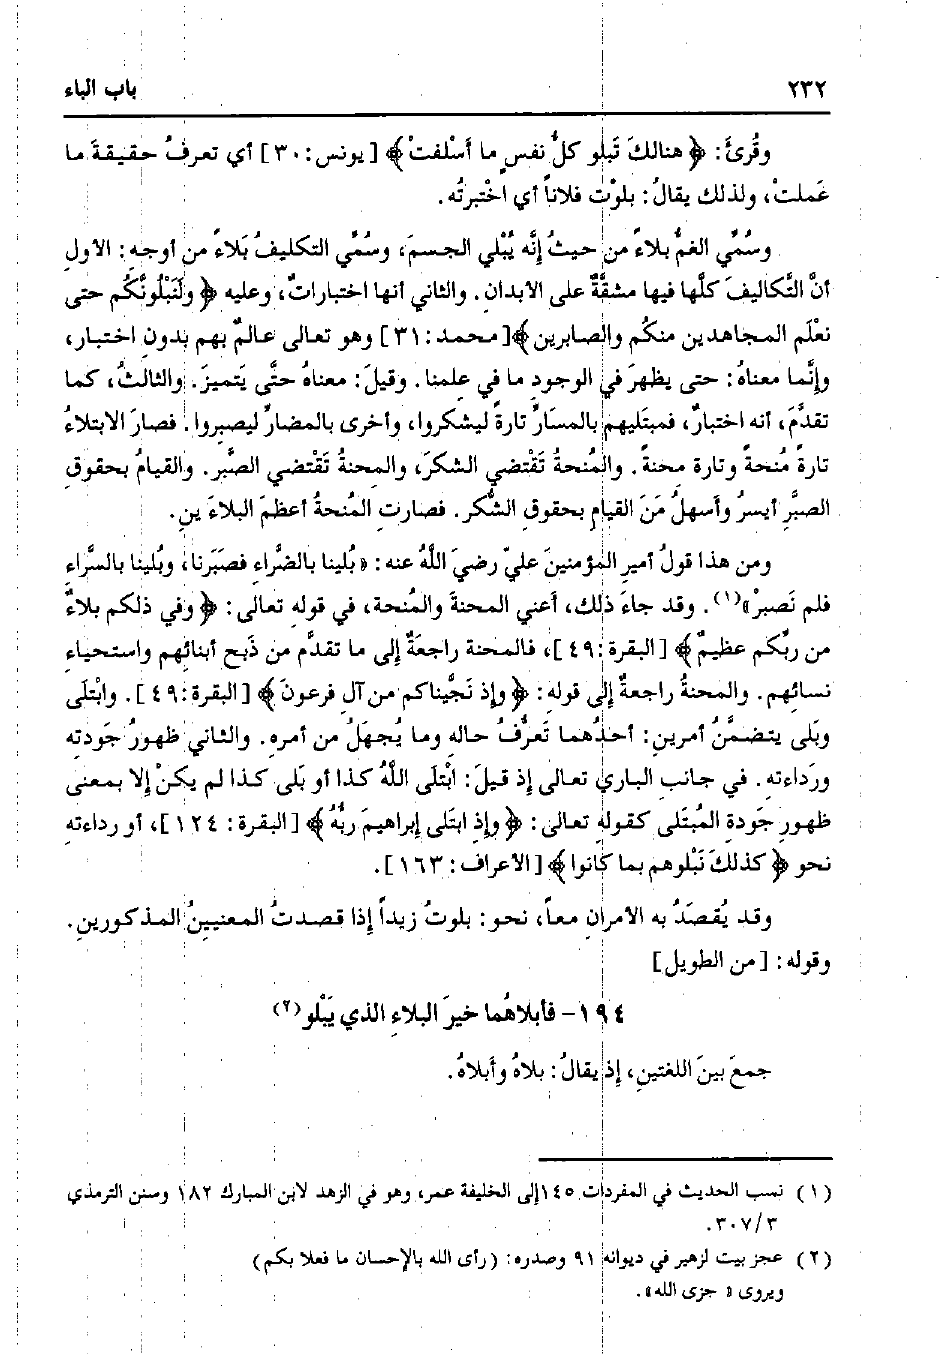 ٢٣٢
باب الباء
وقُرئَ: ﴿ هنالكَ تَبلو كلُّ نفسٍ ما أسْلفتْ ﴾ [يونس: ٣٠] أي تعرفُ حقيقةَ ما
عَملتْ، ولذلك يقالُ: بلوْت فلاناً أي اخْتبرتُه.
وسُمِّي الغمُّ بلاءً من حيثُ إنَّه يُبْلي الجسمَ، وسُمِّي التكليفُ بَلاءً من أوجهٍ: الأولِ
أنَّ التَّكاليفَ كلَّها فيها مشقَّةٌ على الأبدانِ. والثاني أنها اختباراتٌ، وعليه ﴿ ولَنَبْلُونَّكُم حتى
نعْلَم المجاهدين منكُم والصابرين ﴾[محمد: ٣١] وهو تعالى عالمٌ بهم بدونِ اختبار،
وإنَّما معناهُ: حتى يظهرَ في الوجودِ ما في علمنا. وقيلَ: معناهُ حتَّى يَتميزَ. والثالثُ، كما
تقدَّمَ، أنه اختبارٌ، فمبتَليهم بالمسَارِّ تارةً ليشكروا، وأخرى بالمضارِّ ليصبروا. فصارَ الابتلاءُ
تارةً مُنحةً وتارة محنةً. والمُنحةُ تَقْتضي الشكرَ، والمحنةُ تَقْتضي الصَّبر. والقيامُ بحقوقِ
الصبَّرِ أيسرُ وأسهلُ مَنَ القيامِ بحقوق الشُّكر. فصارتِ المُنحةُ أعظمَ البلاءَ ينِ.
ومن هذا قولُ أميرِ المؤمنينَ عليّ رضيَ اللَّهُ عنه: «بُلينا بالضَّراءِ فصَبَرنا، وبُلينا بالسَّراءِ
فلم نَصبرْ»(١). وقد جاءَ ذلك، أعني المحنةَ والمُنحة، في قوله تعالى: ﴿ وفي ذلكم بلاءٌ
من ربِّكم عظيمٌ ﴾ [البقرة: ٤٩]، فالمحنة راجعَةٌ إلى ما تقدَّم من ذَبح أبنائهم واستحياءِ
نسائهم. والمحنةُ راجعةٌ إلى قوله: ﴿ وإذ نَجَّيناكم من آل فرعونَ ﴾ [البقرة: ٤٩]. وابْتلَى
وبَلى يتضمَّنُ أمرين: أحدُهما تَعرُّفُ حاله وما يُجهلُ من أمره. والثاني ظهورُ جَودته
ورَداءته. في جانب الباري تعالى إذ قيلَ: ابْتلَى اللَّهُ كذا أو بَلى كذا لم يكنْ إلا بمعنى
ظهورِ جَودة المُبتَلى كقوله تعالى: ﴿ وإذ ابتَلى إبراهيمَ ربُّهُ ﴾ [البقرة: ١٢٤]، أو رداءته
نحو ﴿ كذلكَ نَبْلوهم بما كانوا ﴾ [الأعراف: ١٦٣].
وقد يُقصَدُ به الأمرانِ معاً، نحو: بلوتُ زيداً إذا قصدتُ المعنيينُ المذكورينِ.
وقوله: [من الطويل]
١٩٤- فأبلاهُما خيرَ البلاءِ الذي يَبْلو(٢)
جمعَ بينَ اللغتينِ، إذ يقالُ: بلاهُ وأبلاهُ.
(١) نسب الحديث في المفردات ١٤٥إلى الخليفة عمر، وهو في الزهد لابن المبارك ١٨٢ وسنن الترمذي
٣٠٧/٣.
(٢) عجز بيت لزهير في ديوانه ٩١ وصدره: (رأى الله بالإحسان ما فعلا بكم)
ويروى « جزى الله».